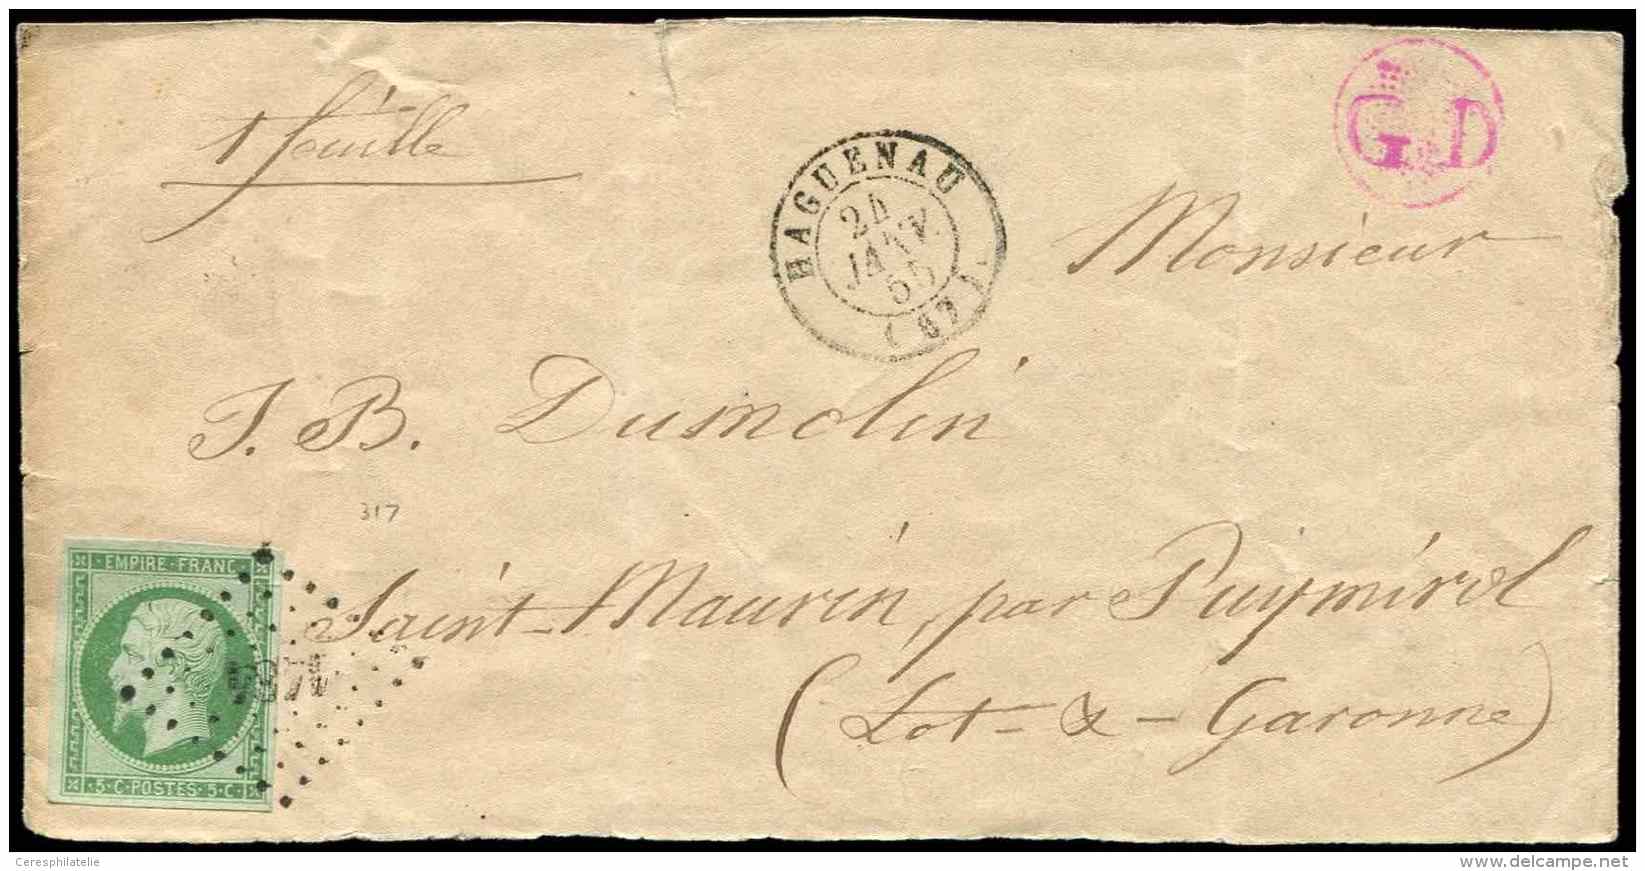 1 feuille
G D
HAGUENAU
JANV.
55
(67)
Monsieur
J. B. Dumolin
317
Saint-Maurin, par Puymirol
(Lot-&-Garonne)
EMPIRE·FRANC·
·5·C·POSTES·5·C·
Ceresphilatelie
delcampe.net